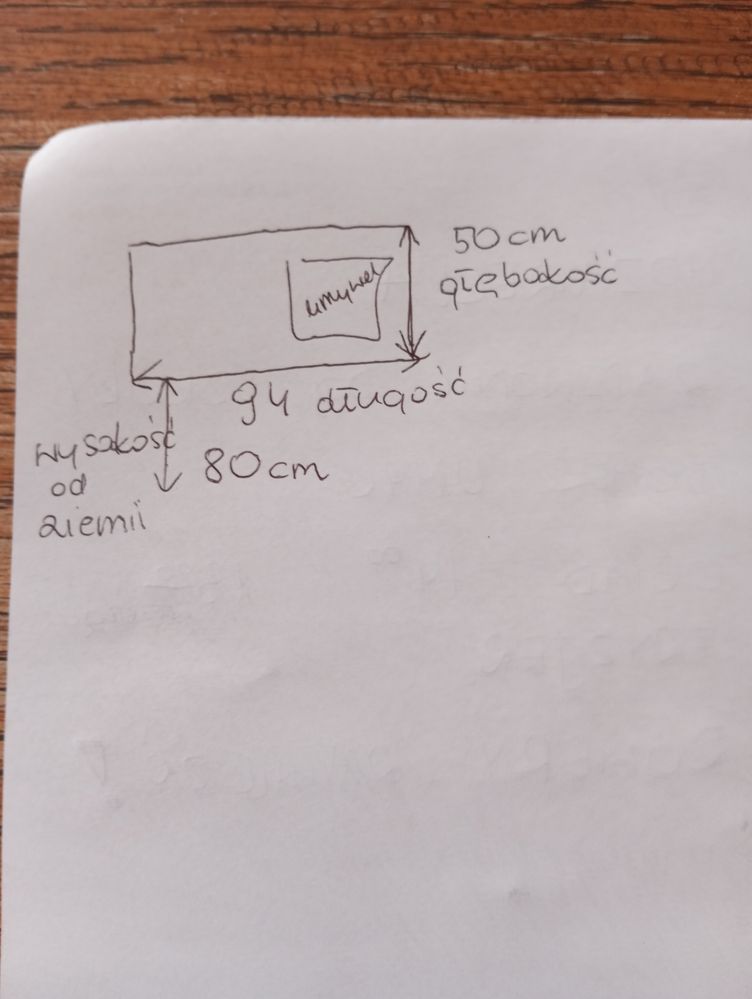 50 cm
głębokość
umywal
94 długość
wysokość
od
ziemii
80 cm